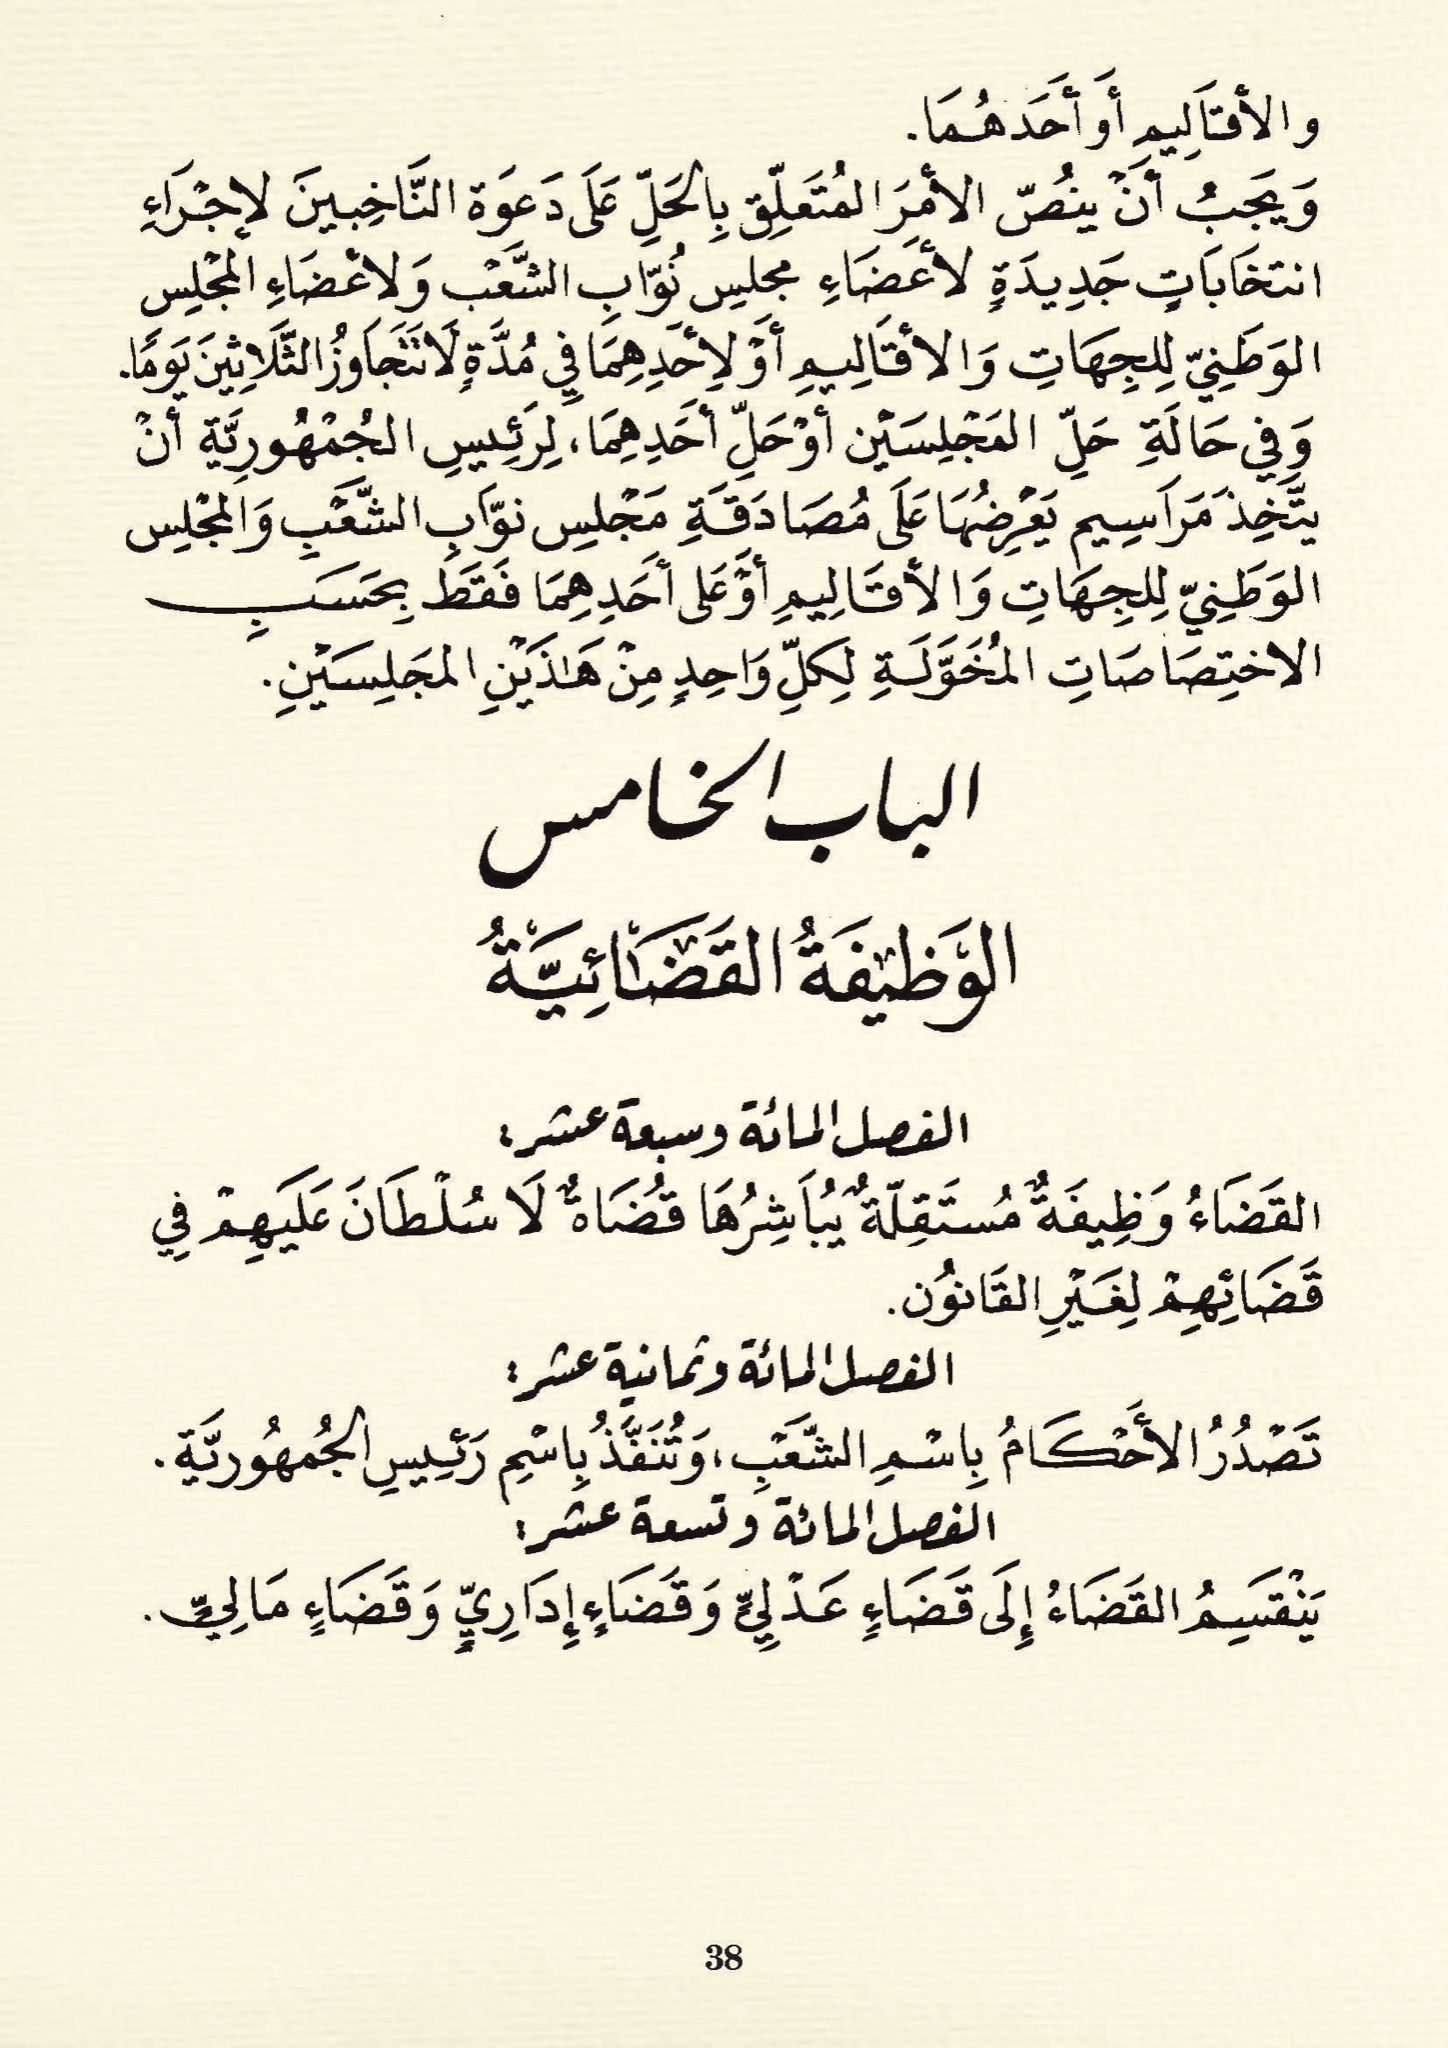 والأقاليمِ أَو أَحَدَهُمَا.
وَيَجِبُ أَنْ ينُصّ الأمرَ المُتَعَلِّق بِالحَلِّ عَلَى دَعوَة النَّاخِبينَ لإجْرَاءِ
انتخَابَاتٍ جَدِيدَةٍ لأعَضَاءِ مجلسِ نُوّابِ الشَّعْب وَلأعْضَاءِ المَجْلِسِ
الوَطَنِيّ لِلجِهَاتِ وَالأقَالِيمِ أَوْ لِأحَدِهِمَا فِي مُدَّةٍ لَا تَتَجَاوزُ الثَّلَاثِينَ يَومًا.
وَفِي حَالَةِ حَلِّ المَجْلِسَيْن أوْ حَلِّ أحَدِهِمَا، لِرَئِيسِ الجُمْهُورِيَّةِ أنْ
يتَّخِذَ مَرَاسِيم يَعْرِضُهَا عَلَى مُصَادَقَةِ مَجْلسِ نوَّابِ الشَّعْبِ وَالمَجْلِسِ
الوَطَنِيّ لِلجِهَاتِ وَالأقَالِيمِ أوْ عَلى أحَدِهِمَا فَقَطْ بِحَسَبِ
الاختِصَاصَاتِ المُخَوَّلَةِ لِكلِّ وَاحِدٍ مِنْ هَاذَيْنِ المجَلِسَيْنِ.
الباب الخامس
الوَظِيفَةُ القَضَائِيَّةُ
الفصل المائة وسبعة عشر:
القَضَاءُ وَظِيفَةٌ مُستَقِلّةٌ يُبَاشِرُهَا قُضَاةٌ لَا سُلْطَانَ عَلَيهِمْ فِي
قَضَائِهِمْ لِغَيْرِ القَانوُن.
الفصل المائة وثمانية عشر:
تَصْدُرُ الأَحْكَامُ بِاسْمِ الشَّعَبِ، وَتُنَفَّذُ بِاسْمِ رَئِيسِ الجُمهُوريَّةِ.
الفصل المائة وتسعة عشر:
يَنْقَسِمُ القَضَاءُ إِلَى قَضَاءٍ عَدْلِيٍّ وَقَضَاءٍ إِدَارِيٍّ وَقَضَاءٍ مَالِيٍّ.
38